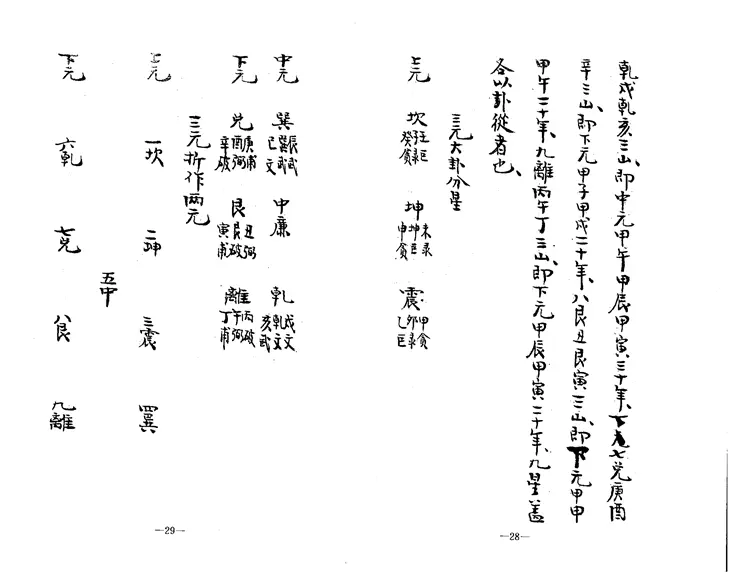 乾戌乾亥三山、即中元甲午甲辰甲寅三十年、下元七兌庚酉
辛三山、即下元甲子甲戌二十年、八艮丑艮寅三山、即下元甲申
甲午二十年、九離丙午丁三山、即下元甲辰甲寅二十年、九星蓋
各以卦從者也、
三元大卦分星
上元 坎 壬巨 子彔 癸貪 坤 未彔 坤巨 申貪 震 甲貪 卯彔 乙巨
—28—
中元 巽 辰武 巽武 巳文 中廉 乾 戌文 乾文 亥武
下元 兌 庚甫 酉弼 辛破 艮 丑弼 艮破 寅甫 離 丙破 午弼 丁甫
三元折作兩元
上元 一坎 二坤 三震 四巽
五中
下元 六乾 七兌 八艮 九離
—29—